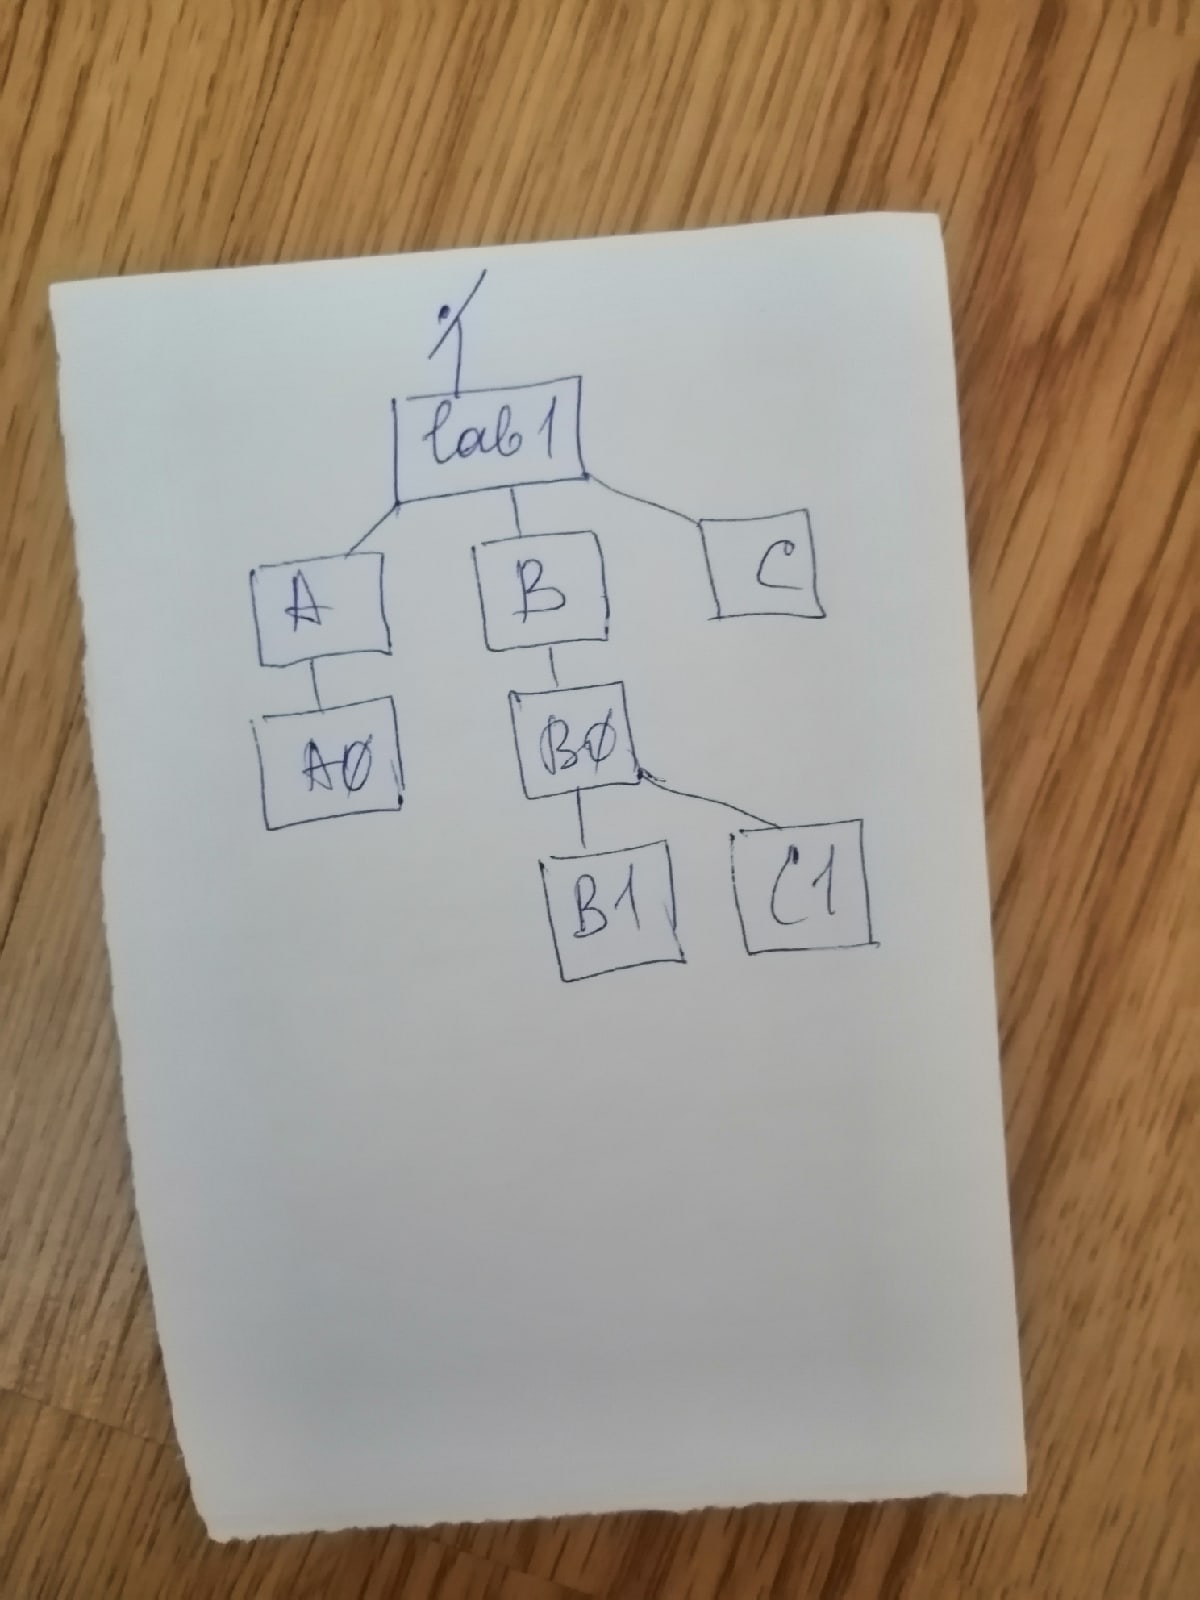 ./
lab1
A B C
A0 B0
B1 C1